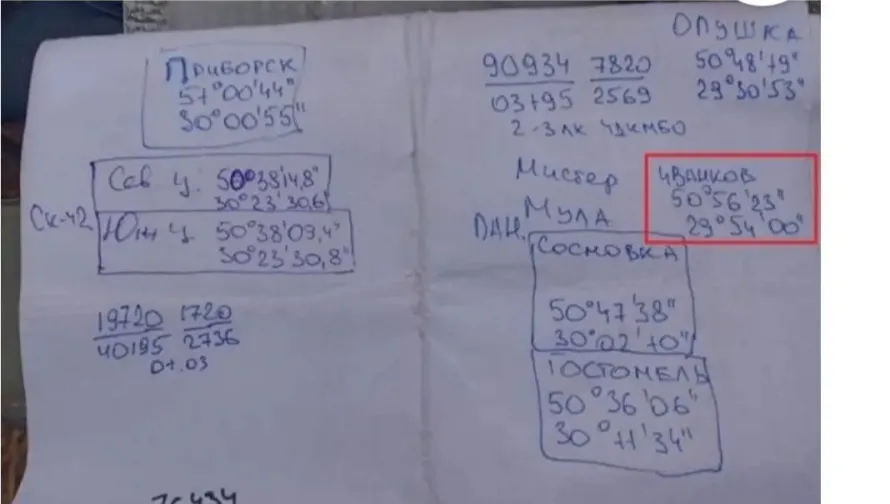 ПРИБОРСК
51°00'44"
30°00'55"
Сев ц. 50°38'14,8"
30°23'30,6"
СК-42
Юж ц. 50°38'09,4"
30°23'30,8"
19720 1720
40195 2736
01.03
ОПУШКА
50°48'19"
29°30'53"
90934 7820
03195 2569
2-3 ЛК
Мистер
МУЛА
ИВАНКОВ
50°56'23"
29°54'00"
СОСНОВКА
50°47'38"
30°02'10"
ГОСТОМЕЛЬ
50°36'06"
30°11'34"